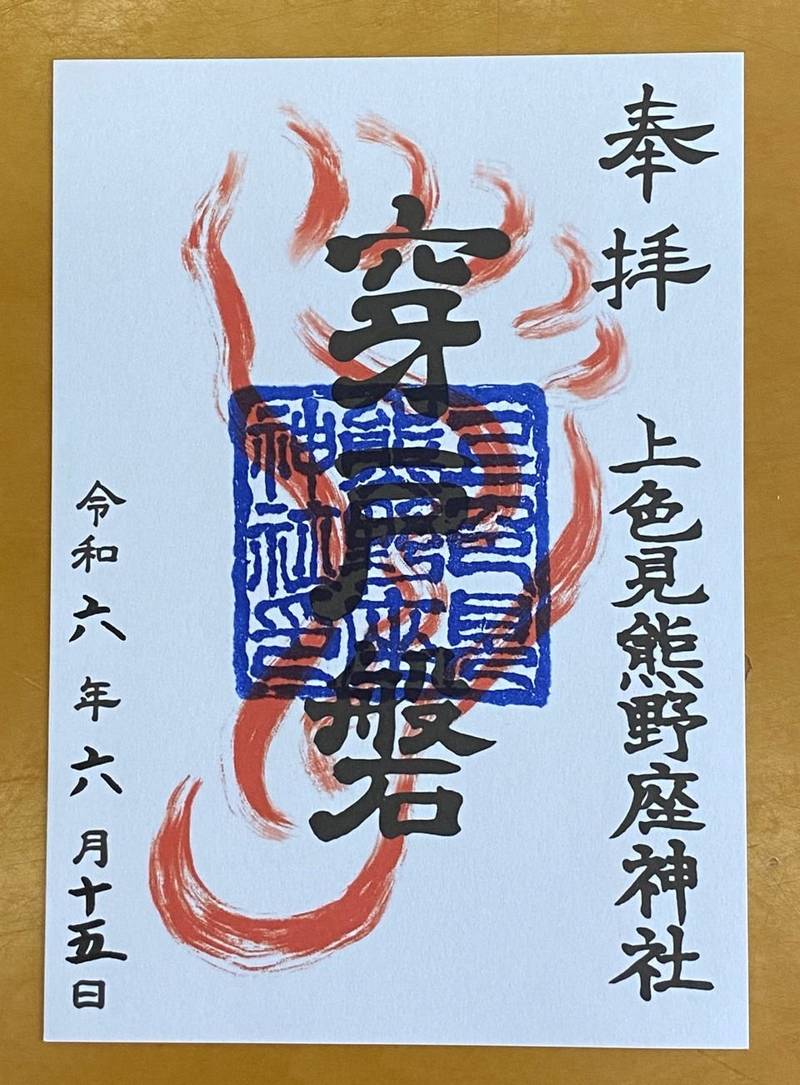 奉拝
上色見熊野座神社
穿戸磐
上色見
熊野座
神社印
令和六年六月十五日